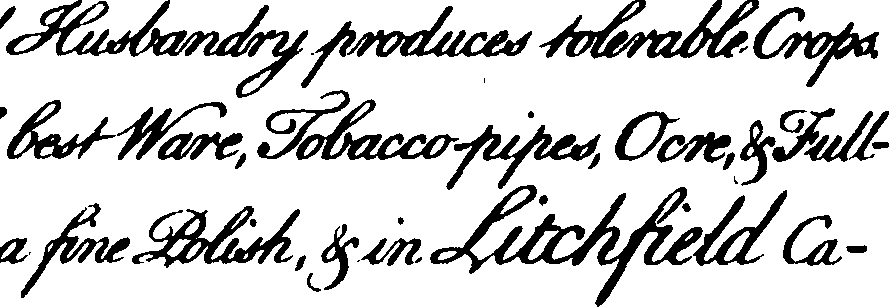 Husbandry produces tolerable Crops.
best Ware, Tobacco-pipes, Ocre, & Full-
a fine Polish, & in Litchfield Ca-